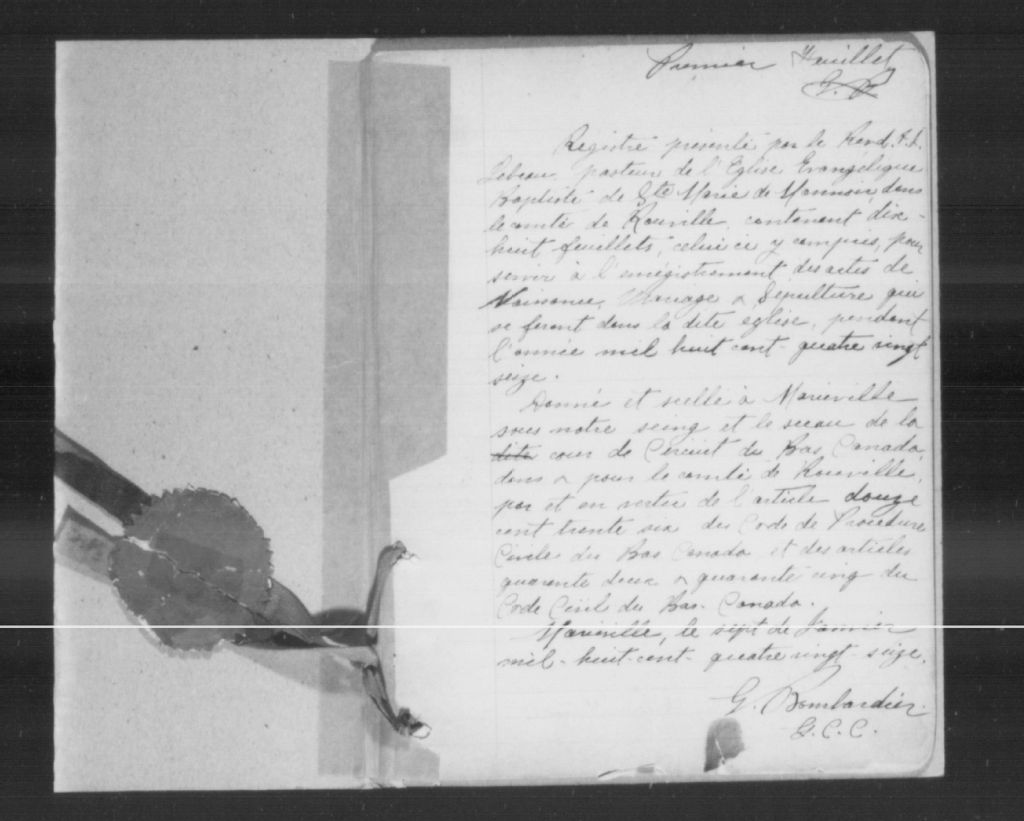 Premier Feuillet
G. B.
Registre présenté par le Revd.
Lebeau, pasteur de l'Eglise Evangélique
Baptiste de Ste Marie de Monnoir, dans
le comté de Rouville, contenant dix-
huit feuillets, celui ci y compris, pour
servir à l'enrégistrement des actes de
Naissance, Mariage & Sépulture qui
se feront dans la dite église, pendant
l'année mil huit cent quatre vingt
seize.
Donné et scellé à Marieville
sous notre seing et le sceau de la
dite cour de Circuit du Bas Canada,
dans & pour le comté de Rouville,
par et en vertu de l'article douze
cent trente six du Code de Procédure
Civile du Bas Canada et des articles
quarante deux & quarante cinq du
Code Civil du Bas-Canada.
Marieville, le sept de Janvier
mil-huit-cent-quatre vingt-seize.
G. Bombardier
G.C.C.